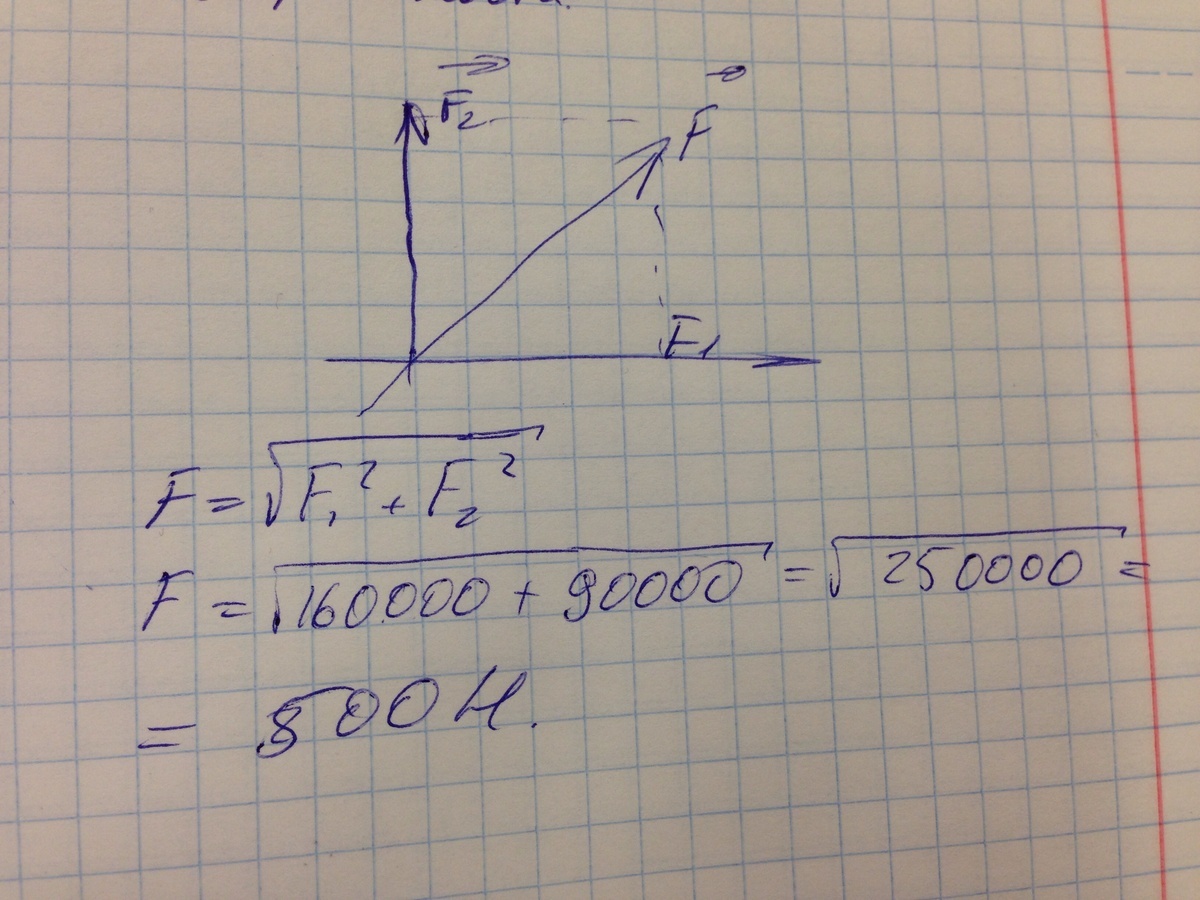 F₂
F
F₁
F = √F₁² + F₂²
F = √160000 + 90000 = √250000 =
= 500 Н.